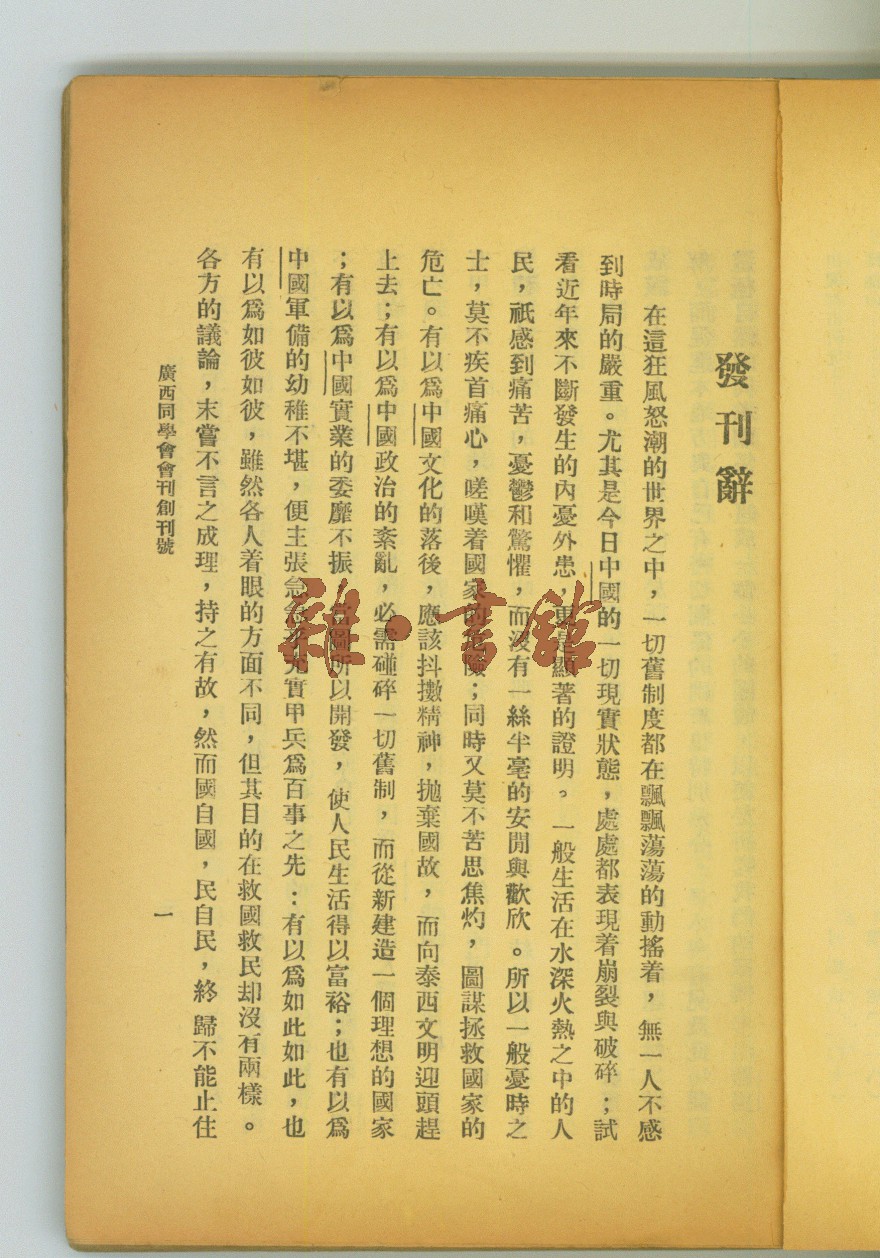 發刊辭
在這狂風怒潮的世界之中，一切舊制度都在飄飄蕩蕩的動搖着，無一人不感
到時局的嚴重。尤其是今日中國的一切現實狀態，處處都表現着崩裂與破碎；試
看近年來不斷發生的內憂外患，更是顯著的證明。一般生活在水深火熱之中的人
民，祇感到痛苦，憂鬱和驚懼，而沒有一絲半毫的安閒與歡欣。所以一般憂時之
士，莫不疾首痛心，嗟嘆着國家的危險；同時又莫不苦思焦灼，圖謀拯救國家的
危亡。有以爲中國文化的落後，應該抖擻精神，拋棄國故，而向泰西文明迎頭趕
上去；有以爲中國政治的紊亂，必需碰碎一切舊制，而從新建造一個理想的國家
；有以爲中國實業的委靡不振，當圖所以開發，使人民生活得以富裕；也有以爲
中國軍備的幼稚不堪，便主張急急乎充實甲兵爲百事之先：有以爲如此如此，也
有以爲如彼如彼，雖然各人着眼的方面不同，但其目的在救國救民却沒有兩樣。
各方的議論，末嘗不言之成理，持之有故，然而國自國，民自民，終歸不能止住
廣西同學會會刊創刊號
一
雜·書館